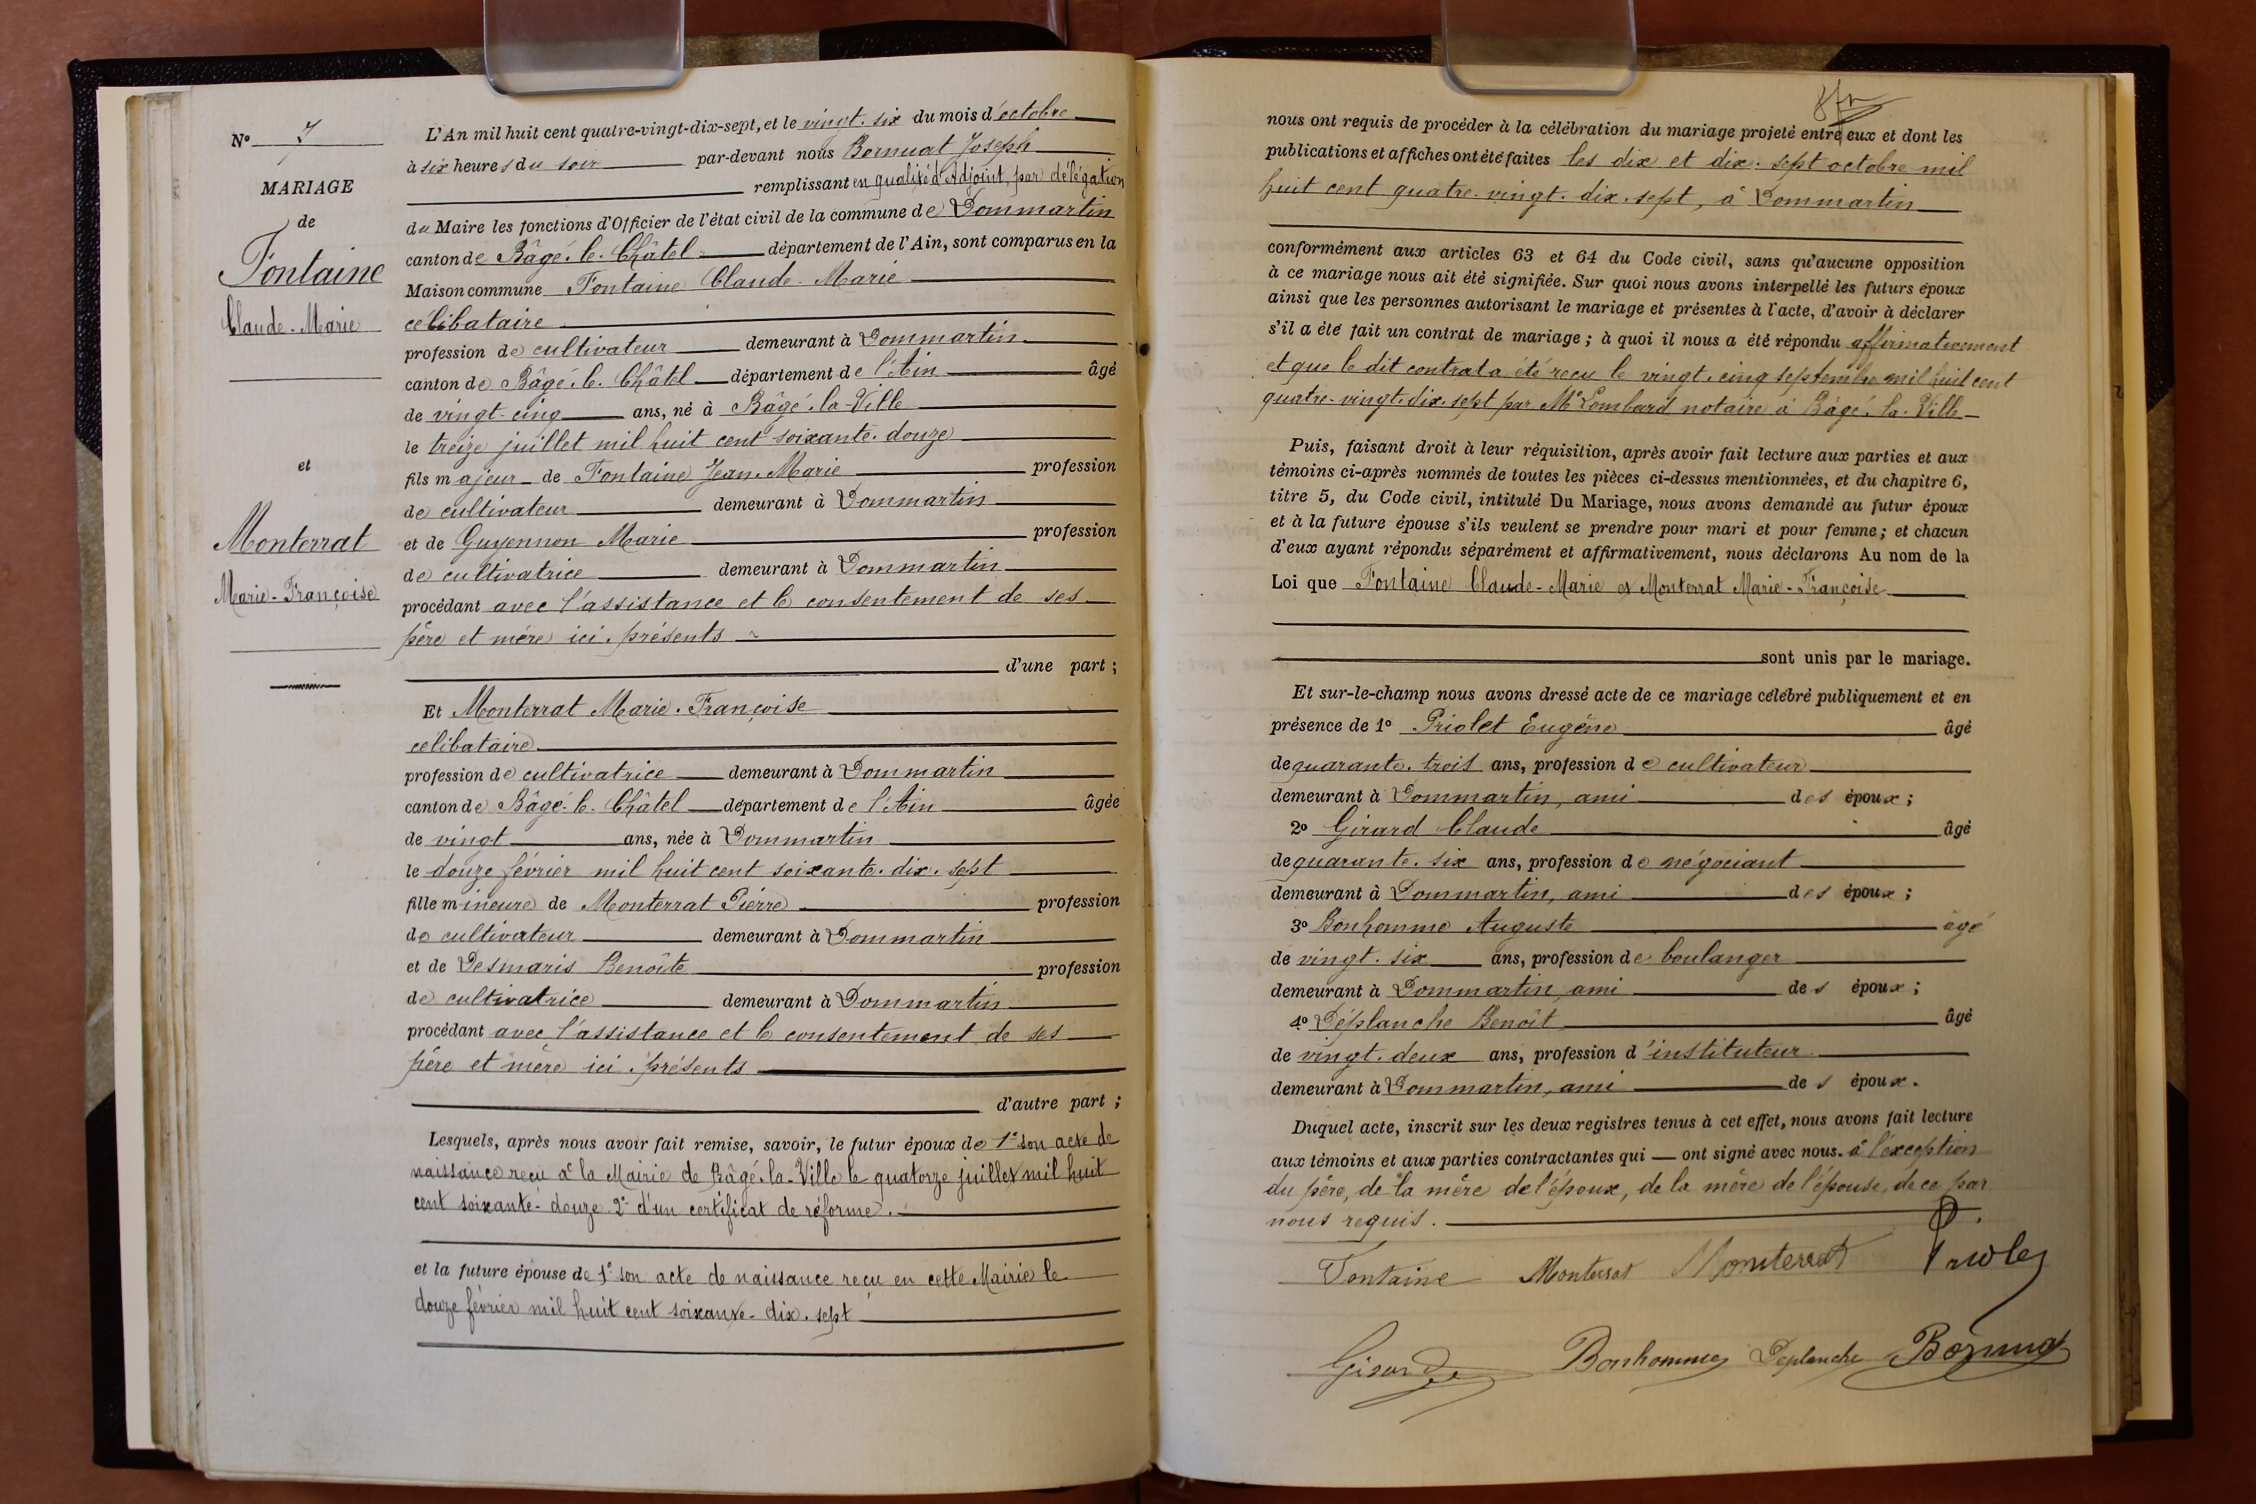 N° 7
MARIAGE
de
Fontaine
Claude-Marie
et
Monterrat
Marie-Françoise
L'An mil huit cent quatre-vingt-dix-sept, et le vingt-six du mois d'octobre
à six heures du soir par-devant nous Bornuat Joseph
remplissant en qualité d'Adjoint, par délégation
du Maire les fonctions d'Officier de l'état civil de la commune de Dommartin
canton de Bâgé-le-Châtel département de l'Ain, sont comparus en la
Maison commune Fontaine Claude-Marie
célibataire
profession de cultivateur demeurant à Dommartin
canton de Bâgé-le-Châtel département de l'Ain âgé
de vingt-cinq ans, né à Bâgé-la-Ville
le treize juillet mil huit cent soixante-douze
fils majeur de Fontaine Jean-Marie profession
de cultivateur demeurant à Dommartin
et de Guyennon Marie profession
de cultivatrice demeurant à Dommartin
procédant avec l'assistance et le consentement de ses
père et mère ici présents
d'une part ;
Et Monterrat Marie-Françoise
célibataire
profession de cultivatrice demeurant à Dommartin
canton de Bâgé-le-Châtel département de l'Ain âgée
de vingt ans, née à Dommartin
le douze février mil huit cent soixante-dix-sept
fille mineure de Monterrat Pierre profession
de cultivateur demeurant à Dommartin
et de Desmaris Benoîte profession
de cultivatrice demeurant à Dommartin
procédant avec l'assistance et le consentement de ses
père et mère ici présents
d'autre part ;
Lesquels, après nous avoir fait remise, savoir, le futur époux de 1° son acte de
naissance reçu à la Mairie de Bâgé-la-Ville le quatorze juillet mil huit
cent soixante-douze 2° d'un certificat de réforme.
et la future épouse de 1° son acte de naissance reçu en cette Mairie le
douze février mil huit cent soixante-dix-sept
nous ont requis de procéder à la célébration du mariage projeté entre eux et dont les
publications et affiches ont été faites les dix et dix-sept octobre mil
huit cent quatre-vingt-dix-sept, à Dommartin
conformément aux articles 63 et 64 du Code civil, sans qu'aucune opposition
à ce mariage nous ait été signifiée. Sur quoi nous avons interpellé les futurs époux
ainsi que les personnes autorisant le mariage et présentes à l'acte, d'avoir à déclarer
s'il a été fait un contrat de mariage ; à quoi il nous a été répondu affirmativement
et que le dit contrat a été reçu le vingt-cinq septembre mil huit cent
quatre-vingt-dix-sept par Me Lombard notaire à Bâgé-la-Ville
Puis, faisant droit à leur réquisition, après avoir fait lecture aux parties et aux
témoins ci-après nommés de toutes les pièces ci-dessus mentionnées, et du chapitre 6,
titre 5, du Code civil, intitulé Du Mariage, nous avons demandé au futur époux
et à la future épouse s'ils veulent se prendre pour mari et pour femme ; et chacun
d'eux ayant répondu séparément et affirmativement, nous déclarons Au nom de la
Loi que Fontaine Claude-Marie et Monterrat Marie-Françoise
sont unis par le mariage.
Et sur-le-champ nous avons dressé acte de ce mariage célébré publiquement et en
présence de 1° Priolet Eugène âgé
de quarante-trois ans, profession de cultivateur
demeurant à Dommartin, ami des époux ;
2° Girard Claude âgé
de quarante-six ans, profession de négociant
demeurant à Dommartin, ami des époux ;
3° Bonhomme Auguste âgé
de vingt-six ans, profession de boulanger
demeurant à Dommartin, ami des époux ;
4° Déplanche Benoît âgé
de vingt-deux ans, profession d'instituteur
demeurant à Dommartin, ami des époux.
Duquel acte, inscrit sur les deux registres tenus à cet effet, nous avons fait lecture
aux témoins et aux parties contractantes qui ont signé avec nous. à l'exception
du père, de la mère de l'époux, de la mère de l'épouse, de ce par
nous requis.
Fontaine Monterrat Monterrat Priolet
Girard Bonhomme Deplanche Bornuat